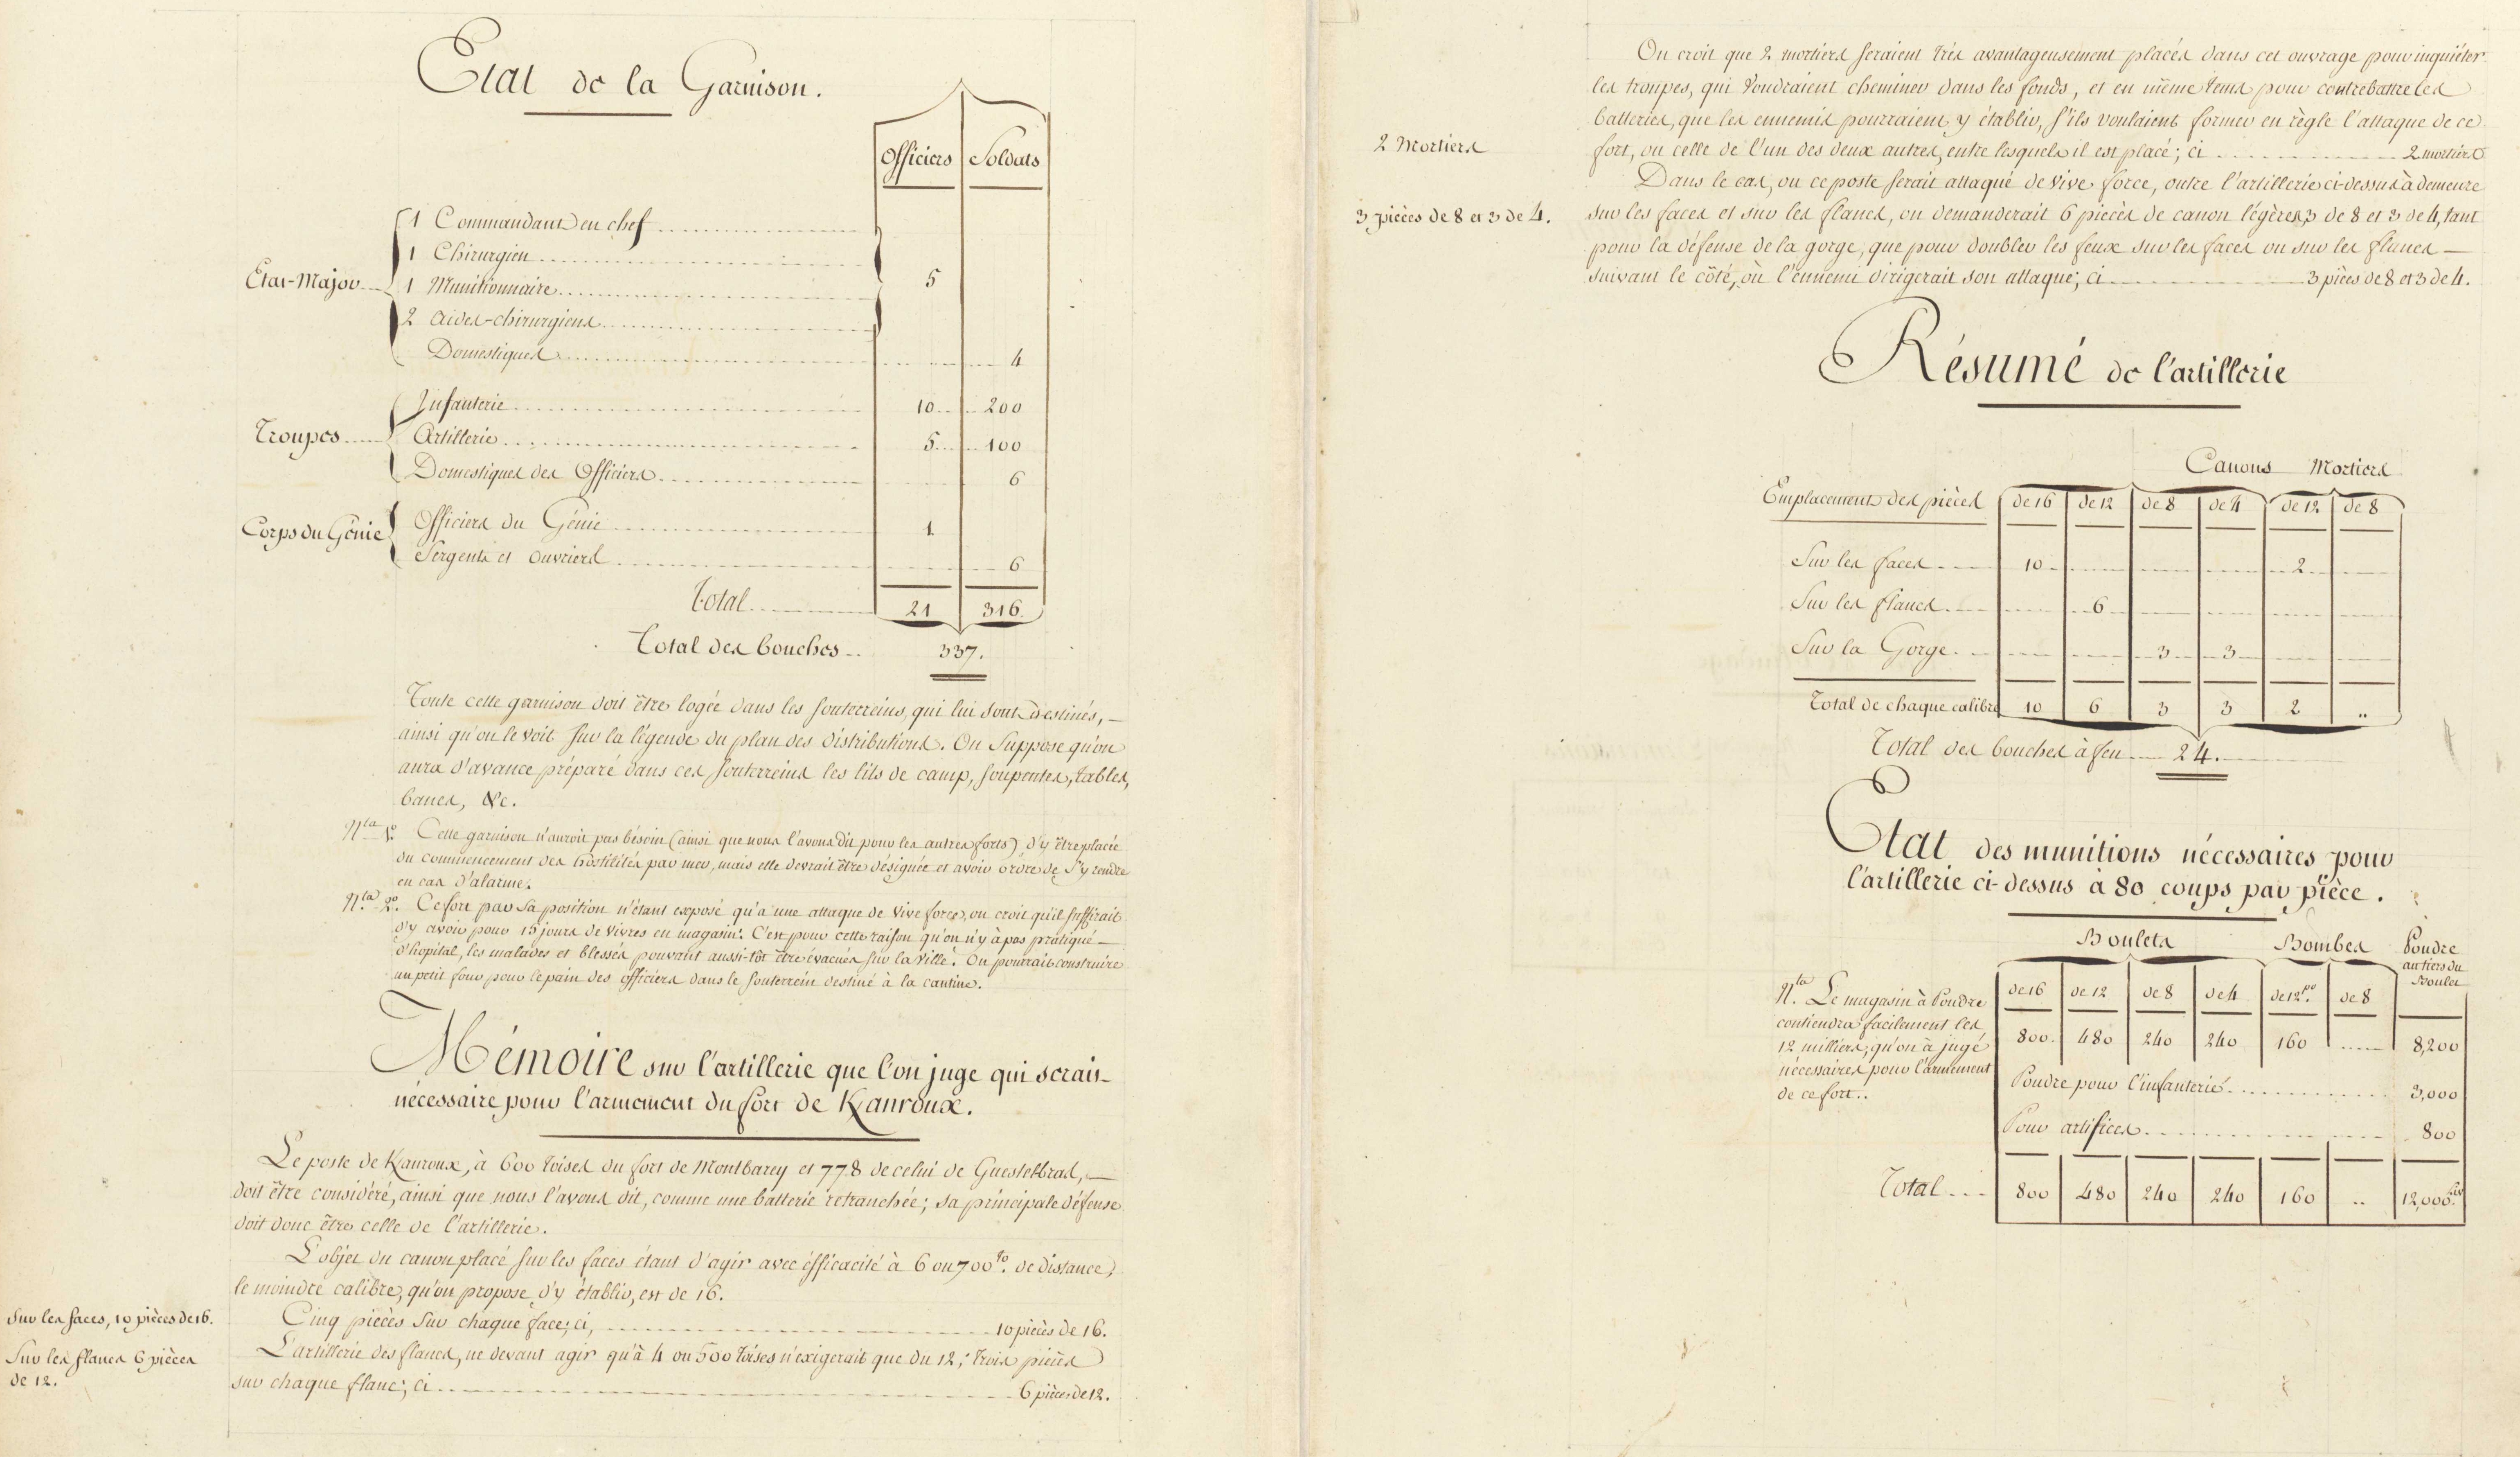 Etat de la Garnison.
Officiers Soldats
Etat-Major
1 Commandant en chef
1 Chirurgien
1 Munitionnaire
2 aides-chirurgiens
5
Domestiques 4
Troupes
Infanterie 10 200
Artillerie 5 100
Domestiques des Officiers 6
Corps du Génie
Officiers du Génie 1
Sergents et ouvriers 6
Total 21 316
Total des bouches 337.
Toute cette garnison doit être logée dans les souterreins, qui lui sont destinés,
ainsi qu'on le voit sur la légende du plan des distributions. On suppose qu'on
aura d'avance préparé dans ces souterreins les lits de camp, soupentes, tables,
bancs, &c.
N.ta 1.o Cette garnison n'auroit pas bésoin (ainsi que nous l'avons dit pour les autres forts) d'y être placée
au commencement des hostilités par mer, mais elle devrait être désignée et avoir ordre de s'y rendre
en cas d'alarme.
N.ta 2.o Ce fort par sa position n'étant exposé qu'a une attaque de vive force, on croit qu'il suffirait
d'y avoir pour 15 jours de vivres en magasin. C'est pour cette raison qu'on n'y à pas pratiqué
d'hopital, les malades et blessés pouvant aussi-tôt être évacués sur la ville. On pourrait construire
un petit four pour le pain des officiers dans le souterrein destiné à la cantine.
Mémoire sur l'artillerie que l'on juge qui serait
nécessaire pour l'armement du fort de Kanroux.
Le poste de Kanroux, à 600 toises du fort de Montbarey et 778 de celui de Guestelbras,
doit être considéré, ainsi que nous l'avons dit, comme une batterie retranchée; sa principale défense
doit donc être celle de l'artillerie.
L'objet du canon placé sur les faces étant d'agir avec éfficacité à 6 ou 700.to de distance,
le moindre calibre, qu'on propose d'y établir, est de 16.
Sur les faces, 10 pièces de 16.
Cinq pièces sur chaque face; ci, 10 pièces de 16.
Sur les flancs 6 pièces
de 12.
L'artillerie des flancs, ne devant agir qu'à 4 ou 500 toises n'exigerait que du 12; trois pièces
sur chaque flanc; ci 6 pièces de 12.
On croit que 2 mortiers seraient très avantageusement placés dans cet ouvrage pour inquiéter
les troupes, qui voudraient cheminer dans les fonds, et en même tems pour contrebattre les
batteries, que les ennemis pourraient y établir, s'ils voulaient former en règle l'attaque de ce
2 Mortiers
fort, ou celle de l'un des deux autres, entre lesquels il est placé; ci 2 mortiers
Dans le cas, ou ce poste serait attaqué de vive force, outre l'artillerie ci-dessus à demeure
3 pièces de 8 et 3 de 4.
sur les faces et sur les flancs, on demanderait 6 pièces de canon légères, 3 de 8 et 3 de 4, tant
pour la défense de la gorge, que pour doubler les feux sur les faces ou sur les flancs
suivant le côté, où l'ennemi dirigerait son attaque; ci 3 pièces de 8 et 3 de 4.
Résumé de l'artillerie
Canons Mortiers
Emplacement des pièces de 16 de 12 de 8 de 4 de 12 de 8
Sur les faces 10 2
Sur les flancs 6
Sur la Gorge 3 3
Total de chaque calibre 10 6 3 3 2 ..
Total des bouches à feu 24.
Etat des munitions nécessaires pour
l'artillerie ci-dessus à 80 coups par pièce.
Boulets Bombes Poudre
au tiers du
Boulet
de 16 de 12 de 8 de 4 de 12.po de 8
800. 480 240 240 160 8,200
N.ta Le magasin à Poudre
contiendra facilement les
12 milliers, qu'on à jugé
nécessaires pour l'armement
de ce fort..
Poudre pour l'infanterie 3,000
Pour artifices 800
Total 800 480 240 240 160 .. 12,000.